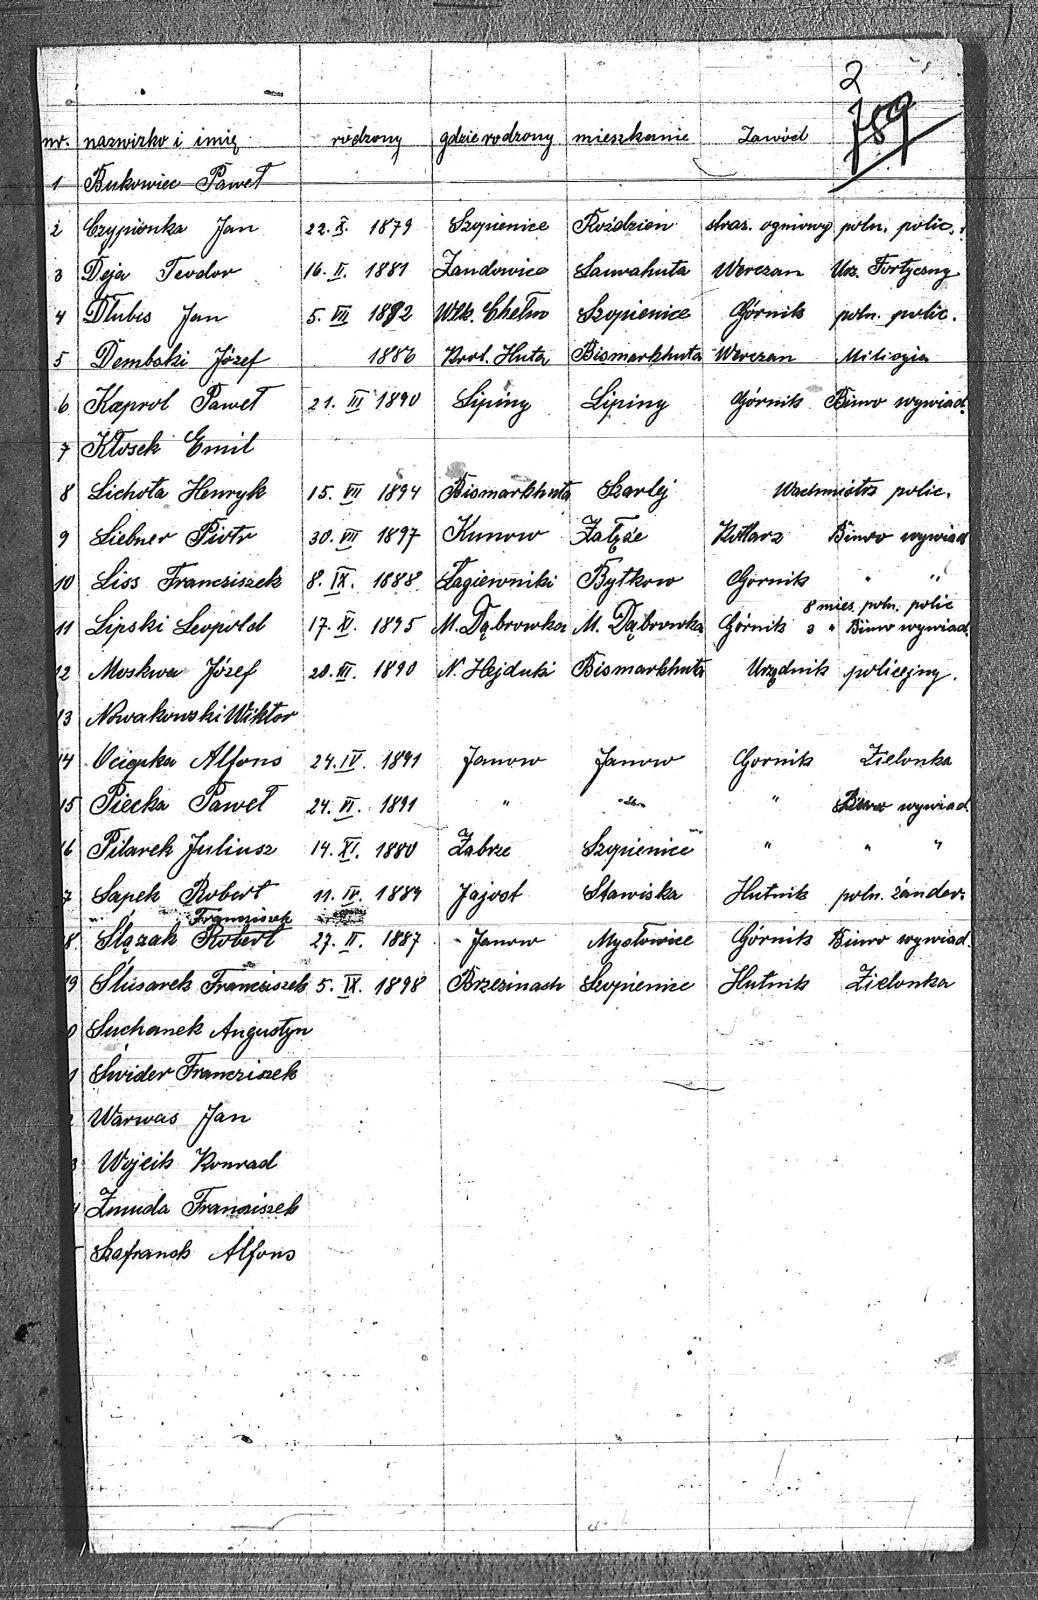 2
789
nr. nazwizko i imię rodzony gdzie rodzony mieszkanie Zawód
1 Bukowiec Paweł
2 Czypionka Jan 22. X. 1879 Szopienice Roździen straż. ogniowy poln. polic.
3 Deja Teodor 16. II. 1881 Żandowice Laurahuta Werczan Urz. Fortyczny
4 Dłubis Jan 5. VII 1882 Wlk. Chełm Szopienice Górnik poln. polic.
5 Dembski Józef 1886 Krol. Huta Bismarkhuta Werczan Miliczia
6 Kaprol Paweł 21. III 1890 Lipiny Lipiny Górnik Biuro wywiad.
7 Kłosek Emil
8 Lichota Henryk 15. VII 1894 Bismarkhuta Szarlej Wachmistrz polic.
9 Liebner Piotr 30. VII 1897 Kunow Załęże Kotlarz Biuro wywiad
10 Liss Franciszek 8. IX. 1888 Łagiewniki Bytkow Gornik " "
8 mies. poln. polic
11 Lipski Leopold 17. XI. 1895 M. Dąbrowka M. Dąbrowka Górnik 3 " Biuro wywiad.
12 Moskwa Józef 20. III. 1890 N. Hejduki Bismarkhuta Urzędnik policejny.
13 Nowakowski Wiktor
14 Ociepka Alfons 24. IV. 1891 Janow Janow Gornik Zielonka
15 Piecka Paweł 24. VI. 1891 " " " Biuro wywiad.
16 Pilarek Juliusz 14. XI. 1880 Zabrze Szopienice " " "
7 Sapek Robert 11. IV. 1889 Jajost Stawiska Hutnik poln. żandar.
Franciszek
8 Ślązak Robert 27. II. 1887 Janow Mysłowice Górnik Biuro wywiad.
19 Ślusarek Franciszek 5. IX. 1898 Brzezinach Szopienice Hutnik Zielonka
0 Suchanek Augustyn
1 Świder Franciszek
2 Warwas Jan
3 Wojcik Konrad
4 Żmuda Franciszek
Szafranek Alfons